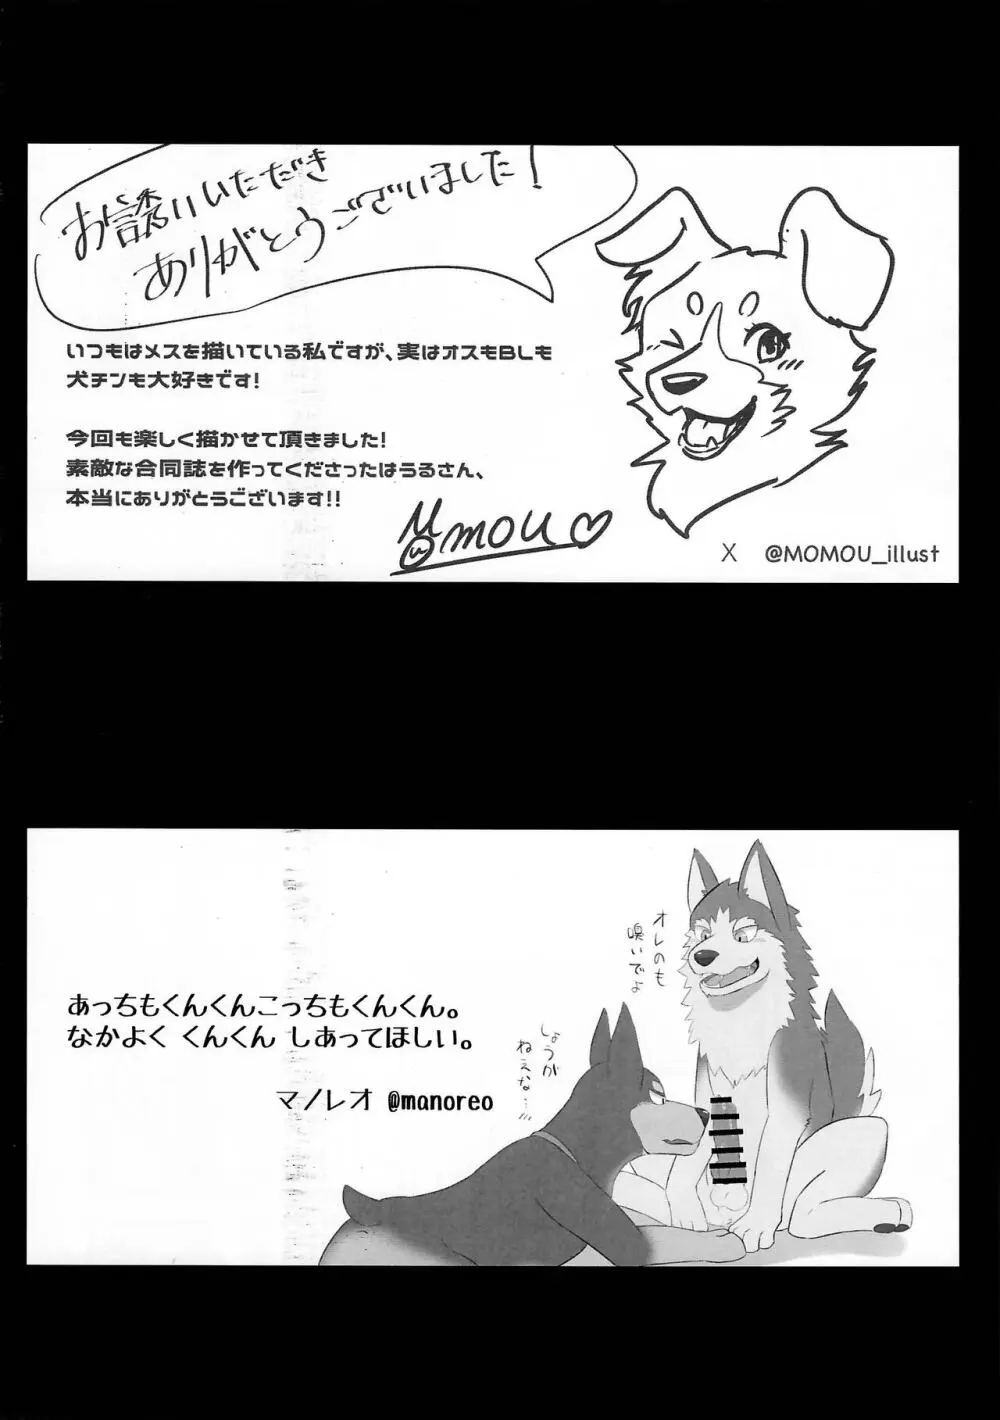 お誘いいただき
ありがとうございました!
いつもはメスを描いている私ですが、実はオスもBLも
犬チンも大好きです!
今回も楽しく描かせて頂きました!
素敵な合同誌を作ってくださったはうるさん、
本当にありがとうございます!!
MOMOU♡
X @MOMOU_illust
オレのも
嗅いでよ
しょうが
ねぇな…
あっちもくんくんこっちもくんくん。
なかよく くんくん しあってほしい。
マノレオ @manoreo